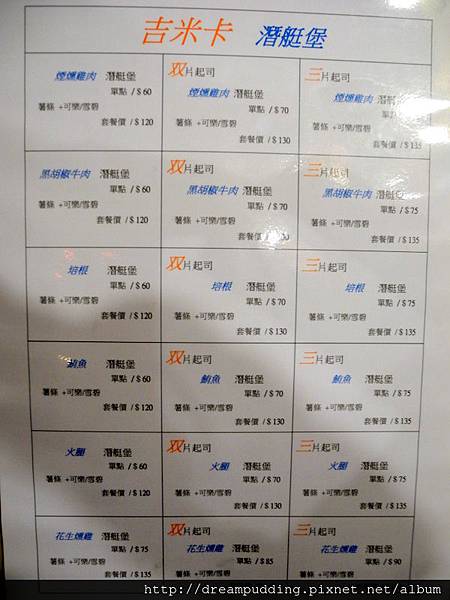 吉米卡 潛艇堡
煙燻雞肉 潛艇堡
單點 / $ 60
薯條 +可樂/雪碧
套餐價 / $ 120
双片起司
煙燻雞肉 潛艇堡
單點 / $ 70
薯條 +可樂/雪碧
套餐價 / $ 130
三片起司
煙燻雞肉 潛艇
單點
薯條 +可樂/雪碧
套餐價 / $ 135
黑胡椒牛肉 潛艇堡
單點 / $ 60
薯條 +可樂/雪碧
套餐價 / $ 120
双片起司
黑胡椒牛肉 潛艇堡
單點 / $ 70
薯條 +可樂/雪碧
套餐價 /
三片起司
黑胡椒牛肉 潛艇
單點 / $ 75
薯條 +可樂/雪碧
套餐價 / $ 135
培根 潛艇堡
單點 / $ 60
薯條 +可樂/雪碧
套餐價 / $ 120
双片起司
培根 潛艇堡
單點 / $ 70
薯條 +可樂/雪碧
套餐價 / $ 130
三片起司
培根 潛艇堡
單點 / $ 75
薯條 +可樂/雪碧
套餐價 / $ 135
鮪魚 潛艇堡
單點 / $ 60
薯條 +可樂/雪碧
套餐價 / $ 120
双片起司
鮪魚 潛艇堡
單點 / $ 70
薯條 +可樂/雪碧
套餐價 / $ 130
三片起司
鮪魚 潛艇堡
單點 / $ 75
薯條 +可樂/雪碧
套餐價 / $ 135
火腿 潛艇堡
單點 / $ 60
薯條 +可樂/雪碧
套餐價 / $ 120
双片起司
火腿 潛艇堡
單點 / $ 70
薯條 +可樂/雪碧
套餐價 / $ 130
三片起司
火腿 潛艇堡
單點 / $ 75
薯條 +可樂/雪碧
套餐價 / $ 135
花生燻雞 潛艇堡
單點 / $ 75
薯條 +可樂/雪碧
套餐價 / $ 135
双片起司
花生燻雞 潛艇堡
單點 / $ 85
薯條 +可樂/雪碧
三片起司
花生燻雞 潛艇堡
單點 / $ 90
薯條 +可樂/雪碧
http://dreampudding.pixnet.net/album